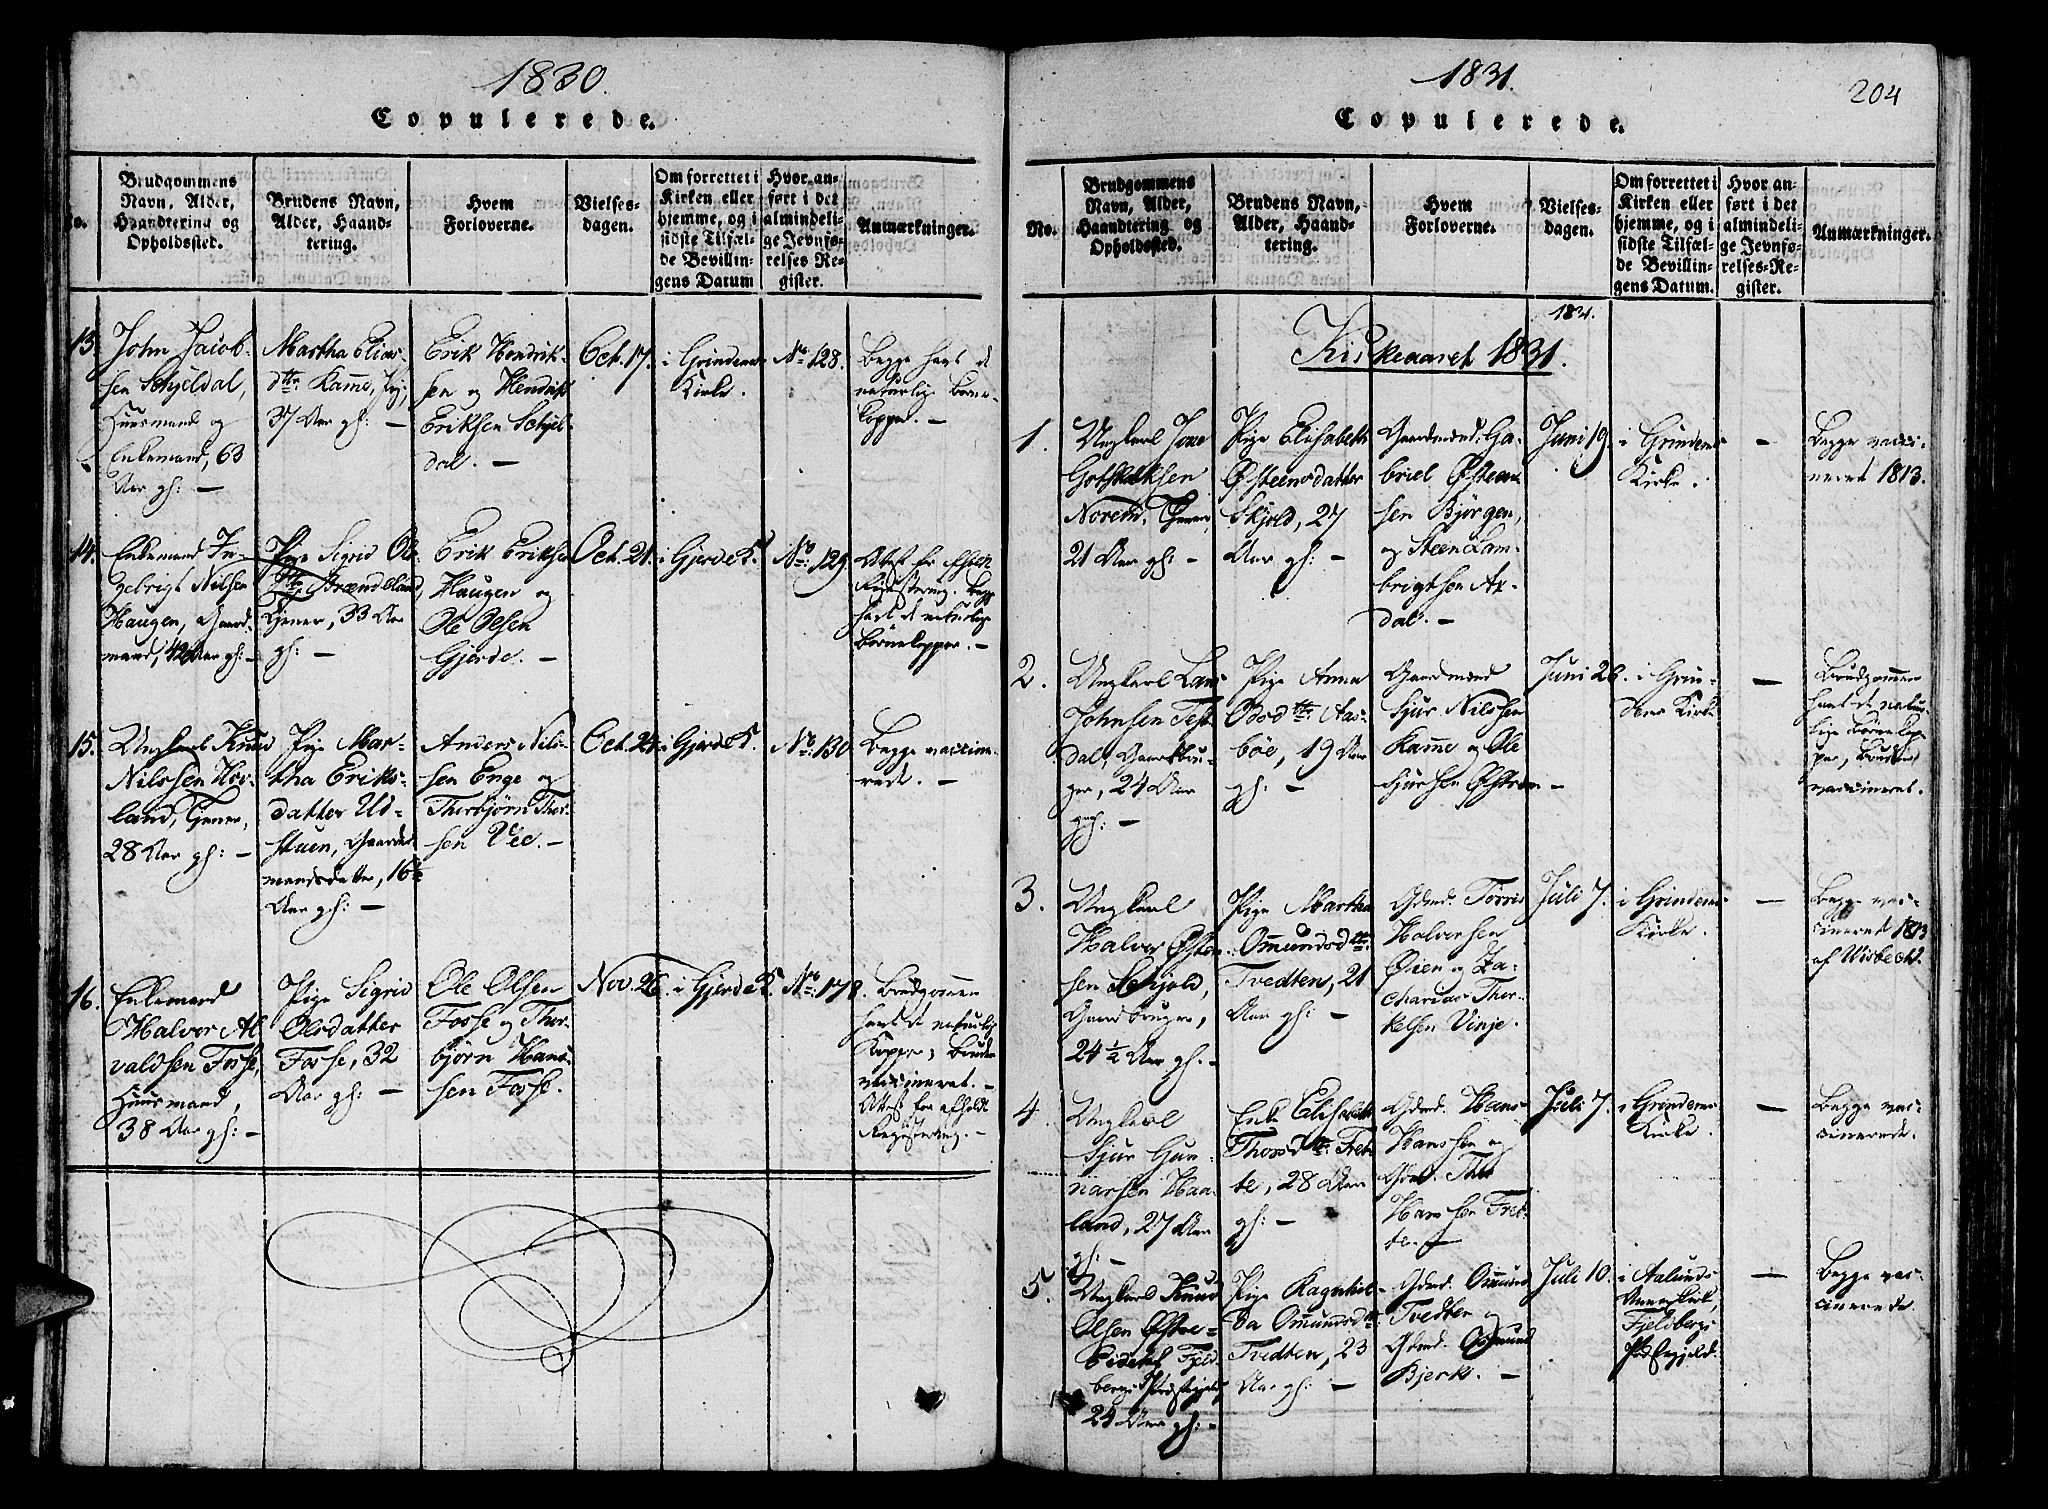 1830.
Copulerede.
No.
Brudgommens
Navn, Alder,
Haandtering og
Opholdssted.
Brudens Navn,
Alder, Haand-
tering.
Hvem
Forloverne.
Vielses-
dagen.
Om forrettet i
Kirken eller
hjemme, og i
sidste Tilfæl-
de Bevillin-
gens Datum
Hvor an-
ført i det
almindeli-
ge Jevnfø-
relses Re-
gister.
Anmærkninger.
13.
John Jacob-
sen Schjeldal,
Huusmand og
Enkemand, 63
Aar gl: —
Martha Elias-
dtr. Kamme, Pige,
37 Aar gl: —
Erik Hendrik-
sen og Hendrik
Eriksen Schjel-
dal. —
Oct. 17.
i Grindems
Kirke.
No. 128.
Begge havt de
naturlige Børne-
kopper. —
14.
Enkemand In-
gebrigt Nilsen
Haugen, Gaard-
mand, 42 Aar gl: —
Pige Sigrid Ols-
dtr. Brændeland,
Tjener, 33 Aar
gl: —
Erik Eriksen
Haugen og
Ole Olsen
Gjerde. —
Oct. 24.
i Gjerde K.
No. 129
Attest for afholdt
Registering. Begge
havt de naturlige
Børnekopper. —
15.
Ungkarl Knud
Nilssen Hov-
land, Tjener,
28 Aar gl: —
Pige Mar-
tha Eriks-
datter Ud-
stuen, Gaard-
mandsdatter, 16½
Aar gl: —
Anders Nils-
sen Enge og
Thorbjørn Thor-
sen Vee. —
Oct. 24.
i Gjerde K.
No. 130
Begge vaccine-
rede. —
16.
Enkemand
Halvor Al-
valdsen Fosse,
Huusmand,
38 Aar gl: —
Pige Sigrid
Olsdatter
Fosse, 32
Aar gl: —
Ole Olsen
Fosse og Thor-
bjørn Hans-
sen Fosse.
Nov. 26.
i Gjerde K.
No. 178.
Brudgommen
havt de naturlige
Kopper, Bruden
vaccineret. —
Attest for afholdt
Registering. —
1831.
204
Copulerede.
No.
Brudgommens
Navn, Alder,
Haandtering og
Opholdssted.
Brudens Navn,
Alder, Haand-
tering.
Hvem
Forloverne.
Vielses-
dagen.
Om forrettet i
Kirken eller
hjemme, og i
sidste Tilfæl-
de Bevillin-
gens Datum.
Hvor an-
ført i det
almindeli-
ge Jevnfø-
relses-Re-
gister.
Anmærkninger.
1831.
Kirkeaaret 1831.
1.
Ungkarl Jone
Gotskalksen
Norem, Tjener,
21 Aar gl: —
Pige Elisabeth
Østeensdatter
Skjold, 27
Aar gl: —
Gaardmænd: Ga-
briel Østeen-
sen Bjørgen,
og Steen Lam-
brigtsen Ax-
dal. —
Juni 19.
i Grindems
Kirke.
—
Begge vacci-
neret 1813.
2.
Ungkarl Lars
Johnsen Test-
dal, Gaardbru-
ger, 24 Aar
gl: —
Pige Anna
Odsdtr. Aas-
bøe, 19 Aar
gl: —
Gaardmænd
Sjur Nilssen
Kamme og Ole
Sjursen Østrem —
Juni 26.
i Grin-
dems Kirke
—
Brudgommen
havt de natur-
lige Børnekop-
per, Bruden
vaccineret.
3.
Ungkarl
Halvor Østen-
sen Schjold,
Gaardbruger,
24 ½ Aar gl. —
Pige Martha
Ommundsdtr.
Tvedten, 21
Aar gl: —
Gdmd. Torris
Halversen
Øien og Za-
charias Thor-
kelsen Vinje.
Juli 7.
i Grindems
Kirke.
—
Begge vac-
cineret 1813
af Wisbech.
4.
Ungkarl
Sjur Gun-
narsen Haa-
land, 27 Aar
gl: —
Enke Elisabeth
Thorsdtr. Fret-
te, 28 Aar
gl: —
Gdmd. Hans
Hanssen og
Gdmd. Thor
Hanssen Fret-
te. —
Juli 7.
i Grindems
Kirke.
—
Begge vac-
cinerede.
5.
Ungkarl Knud
Olsen Østre-
Eidetel Fjeld-
bergs Præstegjeld,
24 Aar gl: —
Pige Ragnhil-
da Ommundsdtr.
Tvedten, 23
Aar gl: —
Gdmd. Ommund
Tvedten og
Gdmd. Osmund
Bjerk. —
Juli 10.
i Aalunds
Annexkirke,
Fjeldbergs
Præstegjeld.
—
Begge vac-
cinerede